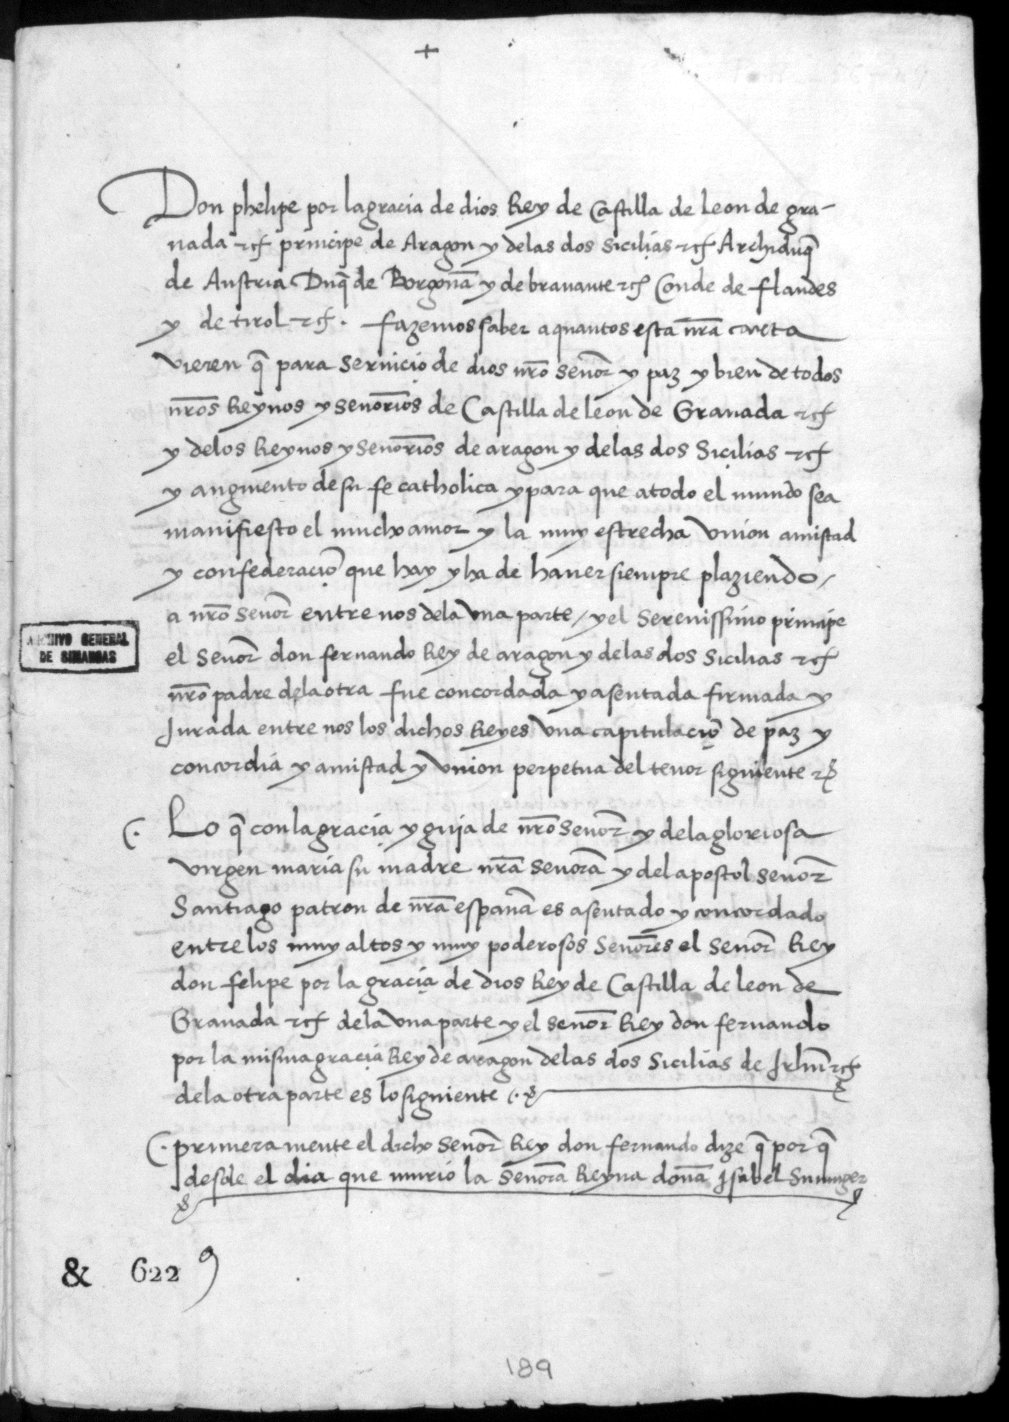 +
Don phelipe por la gracia de dios Rey de Castilla de leon de gra-
nada etc̃ principe de Aragon y delas dos Sicilias etc̃ Archiduq̃
de Austria Duq̃ de Borgoña y de bravante etc̃ Conde de flandes
y de tirol etc̃. fazemos saber a quantos esta nr̃a carta
vieren q̃ para servicio de dios nr̃o señor y paz y bien de todos
nr̃os Reynos y señorios de Castilla de leon de Granada etc̃
y delos Reynos y señorios de aragon y delas dos Sicilias etc̃
y augmento de su fe catholica y para que a todo el mundo sea
manifiesto el mucho amor y la muy estrecha Vnion amistad
y confederaciõ que hay y ha de haver siempre plaziendo /
a nr̃o señor entre nos dela Vna parte / y el Serenissimo principe
el señor don fernando Rey de aragon y delas dos Sicilias etc̃
nr̃o padre dela otra fue concordada y asentada firmada y
Jurada entre nos los dichos Reyes Vna capitulaciõ de paz y
concordia y amistad y Vnion perpetua del tenor siguiente
ARCHIVO GENERAL
DE SIMANCAS
(. Lo q̃ con la gracia y guija de nr̃o señor y dela gloriosa
virgen maria su madre nr̃a señora y del apostol señor
Santiago patron de nr̃a españa es asentado y concordado
entre los muy altos y muy poderosos señores el señor Rey
don felipe por la gracia de dios Rey de Castilla de leon de
Granada etc̃ dela Vna parte y el señor Rey don fernando
por la misma gracia Rey de aragon delas dos Sicilias de Jrlm̃ etc̃
dela otra parte es lo siguiente
(. primera mente el dicho señor Rey don fernando dize q̃ por q̃
desde el dia que murio la señora Reyna doña Isabel Su muger
& 622
189